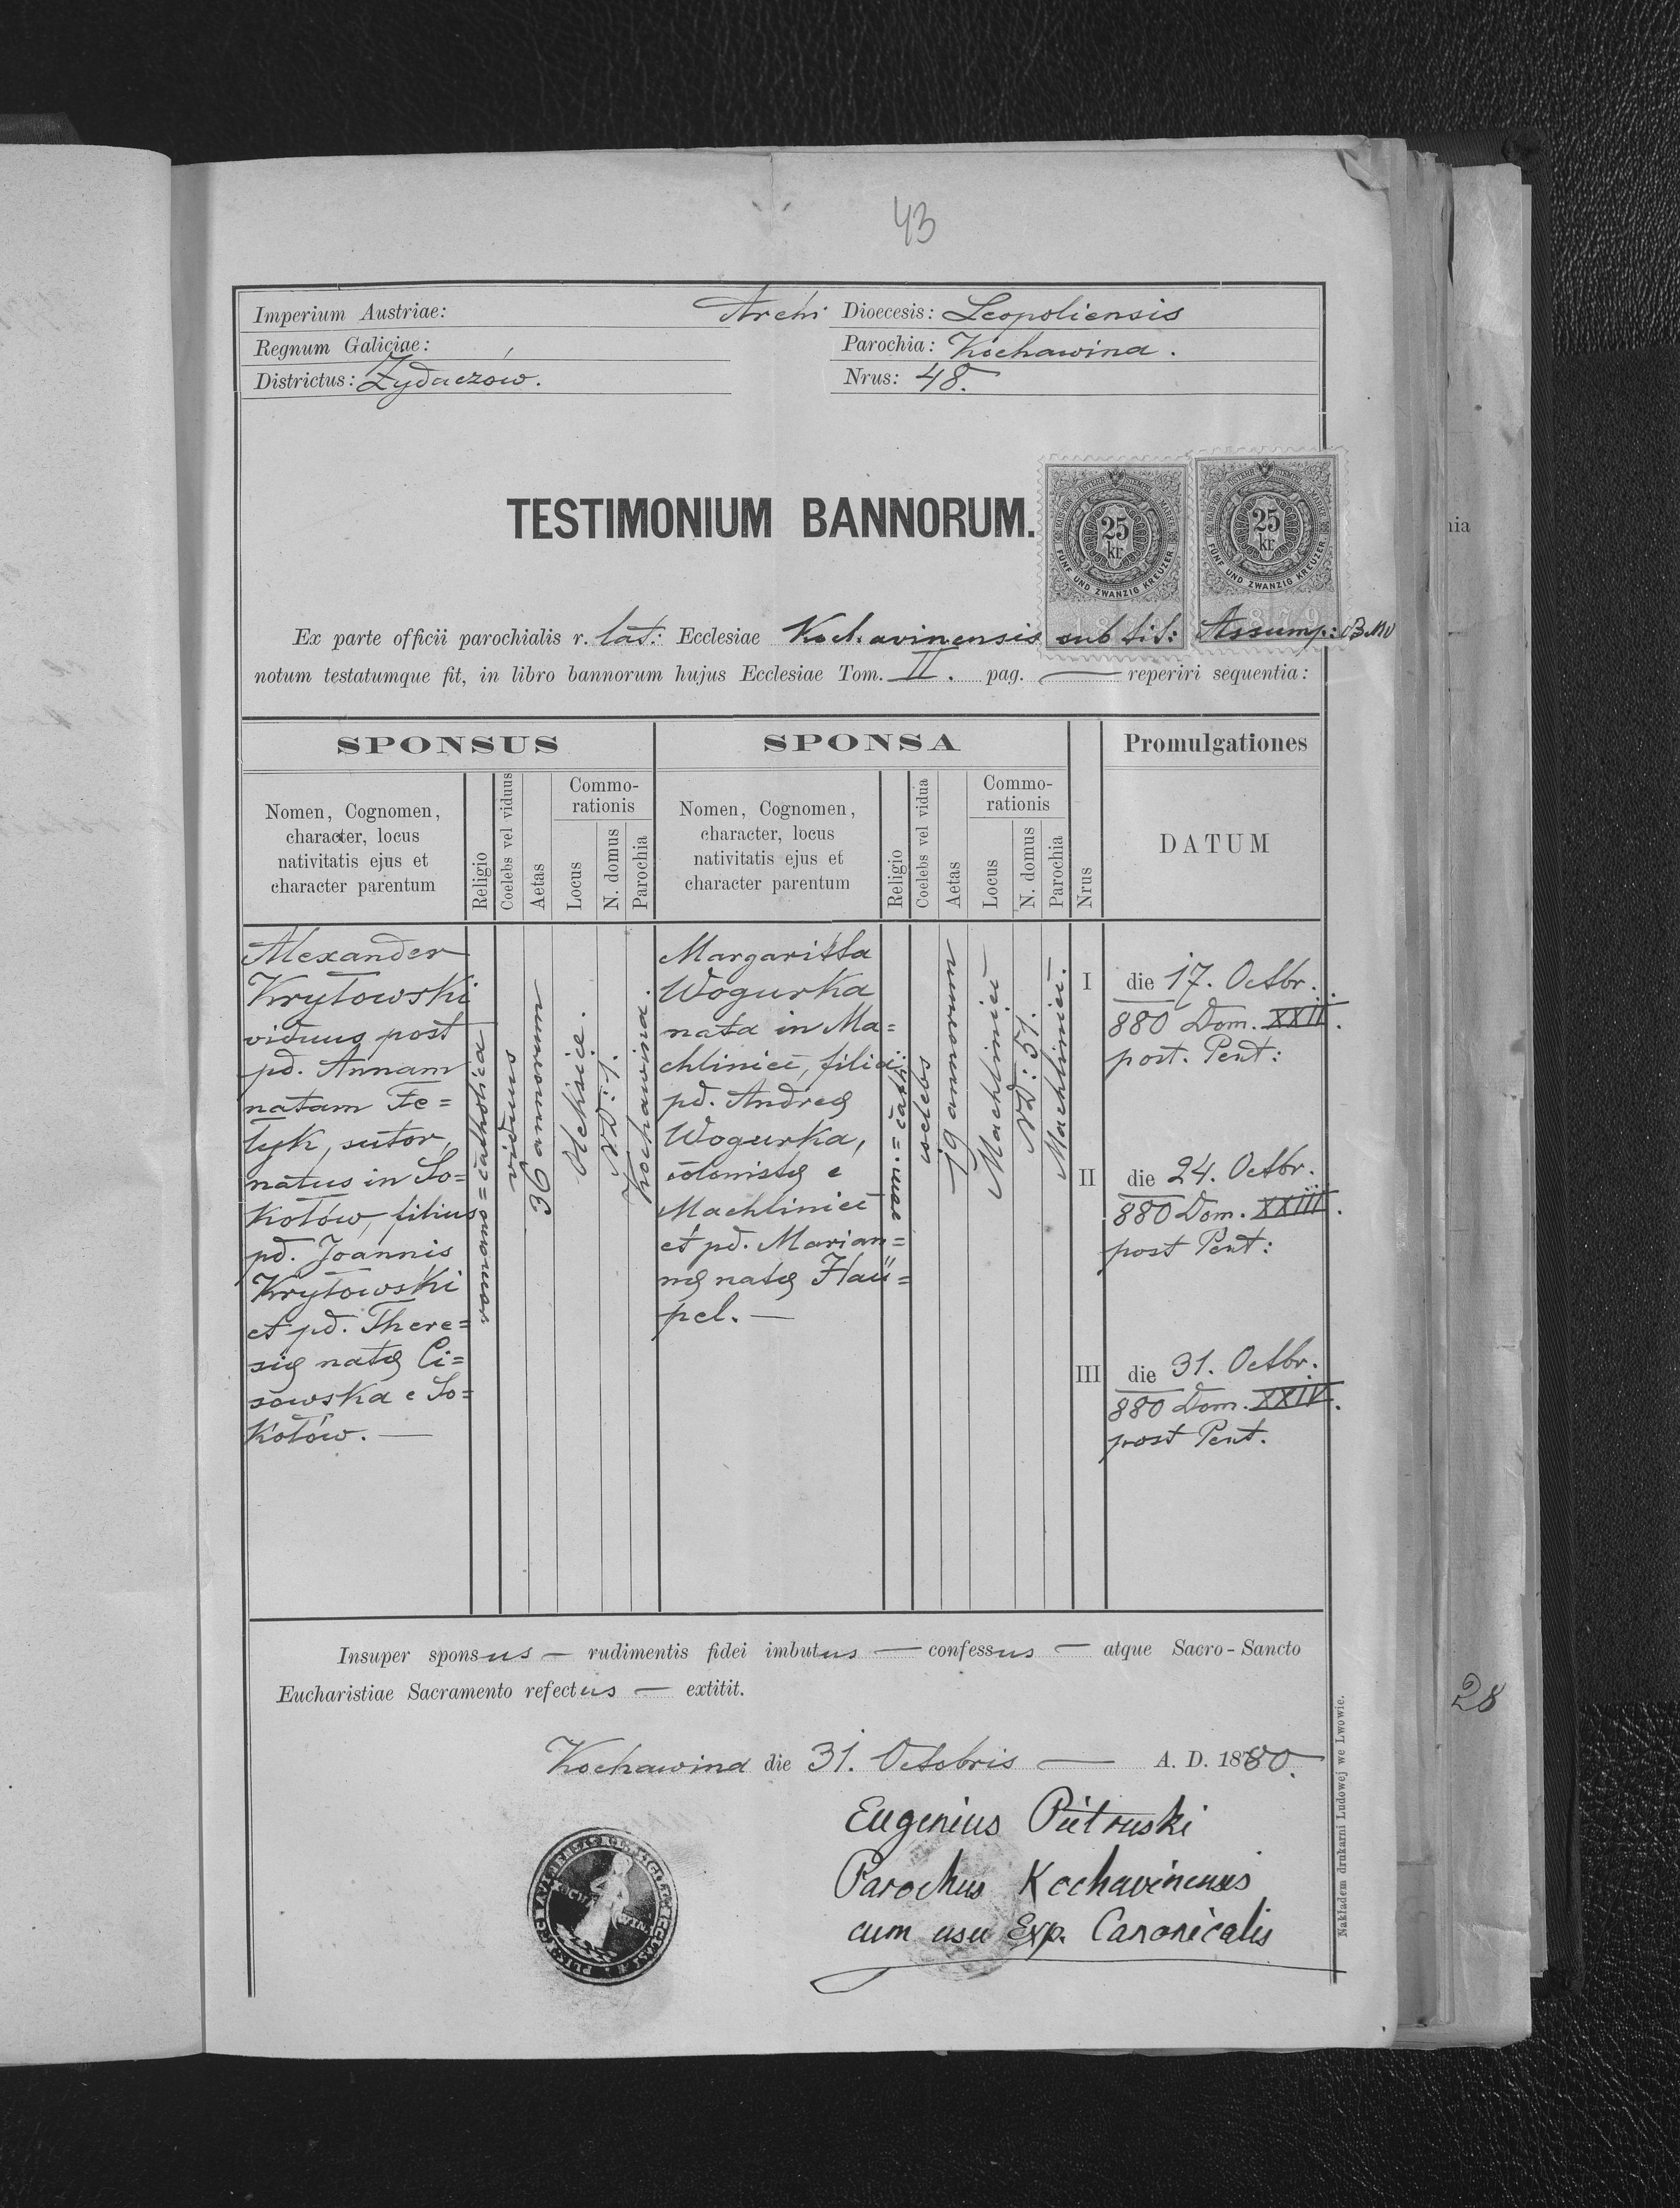 43
Imperium Austriae:
Regnum Galiciae:
Districtus: Żydaczów.
Archi Dioecesis: Leopoliensis
Parochia: Kochawina.
Nrus: 48.
TESTIMONIUM BANNORUM.
25 kr.
FÜNF UND ZWANZIG KREUZER
25 kr.
FÜNF UND ZWANZIG KREUZER
1879
Ex parte officii parochialis r. lat: Ecclesiae Kochavinensis sub tit: Assump: BMV
notum testatumque fit, in libro bannorum hujus Ecclesiae Tom. II. pag. — reperiri sequentia:
SPONSUS
Nomen, Cognomen,
character, locus
nativitatis ejus et
character parentum
Religio
Coelebs vel viduus
Aetas
Commo-
rationis
Locus
N. domus
Parochia
SPONSA
Nomen, Cognomen,
character, locus
nativitatis ejus et
character parentum
Religio
Coelebs vel vidua
Aetas
Commo-
rationis
Locus
N. domus
Parochia
Nrus
Promulgationes
DATUM
Alexander
Krytowski
viduus post
pd. Annam
natam Fe=
lyk, sutor,
natus in So=
kołów, filius
pd. Joannis
Krytowski
et pd. There=
się natę Ci=
sowska e So=
kołów. —
romano=catholica
viduus
36 annorum
ND: 1.
Kochawina.
Margaritta
Wogurka
nata in Ma=
chliniec, filia
pd. Andreę
Wogurka,
colonistę e
Machliniec
et pd. Marian=
nę natę Hau=
pel. —
rom.=cath:
coelebs
19 annorum
Machliniec —
ND: 51.
Machliniec —
I die 17. Octbr.
880 Dom. XXII.
post. Pent:
II die 24. Octbr.
880 Dom. XXIII.
post Pent:
III die 31. Octbr.
880 Dom. XXIV.
post Pent.
Insuper sponsus — rudimentis fidei imbutus — confessus — atque Sacro-Sancto
Eucharistiae Sacramento refectus — extitit.
Kochawina die 31. Octobris — A. D. 1880.
Eugenius Pietruski
Parochus Kochavinensis
cum usu Exp. Canonicalis
Nakładem drukarni Ludowej we Lwowie.
nia
28